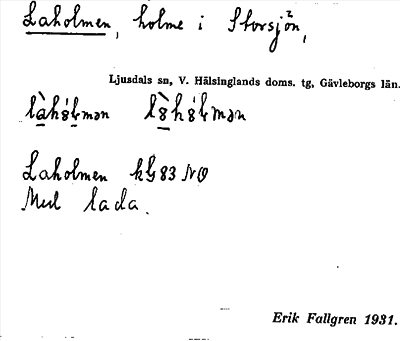 Laholmen, holme i Storsjön,
Ljusdals sn, V. Hälsinglands doms. tg, Gävleborgs län.
Laholmen kbl 83 NO
Med lada.
Erik Fallgren 1931.